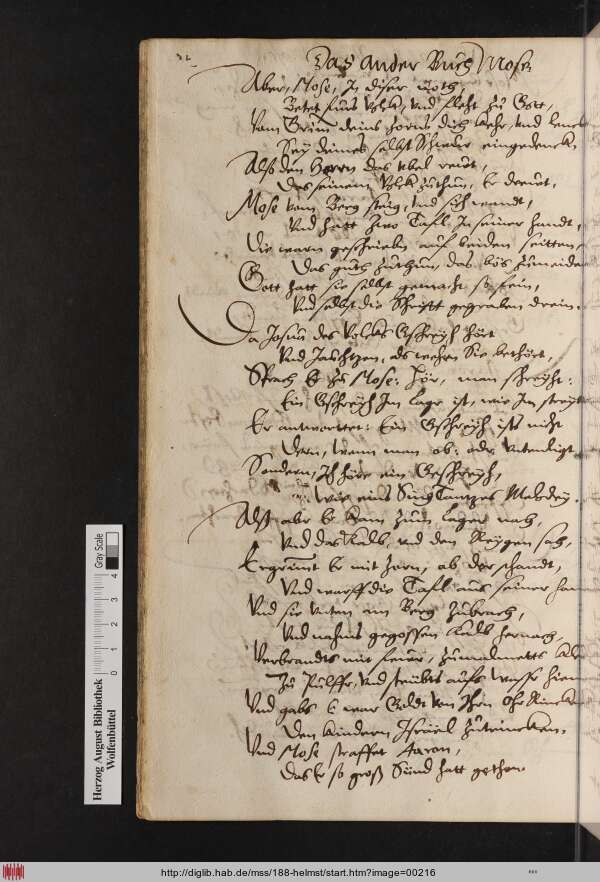 32
Das Ander Buch Mose
Aber, Mose, In diser noth,
Betet fürs Volk, vnd fleht zu Gott,
Vom Grim deins Zorns dich kehr, vnd
Sey deines selbst Schwur eingedenck
Alß den Herrn das vbel rewt,
Das seinem Volck zuthun, Er drewt,
Mose vom Berg stig, vnd sich wandt,
Vnd hatt zwo Tafl In seiner Handt,
Die warn geschriebn auf beiden seitten,
Das gutt zuthun, das bös zumeiden
Gott hatt sie selbst gemacht so fein,
Vnd selbst die Schrifft gegraben drein.
Da Josua des Volcks Gschreyh hört
Vnd Jauchtzen, als wehrn Sie bethört,
Sprach Er zu Mose: Hör, man schreyht:
Ein Gschreyh Im Lager ist, wie Im streyt
Er antworttet: Ein Gschreyh ists nicht
Dern, wann man ob- oder vntenligt
Sondern, Ich höre ein Geschreyh,
Wie eins Sing Tantzes Melodey.
Alß aber Er kam zum Lager nach,
Vnd das Kalb, vnd den Reygen sah,
Ergrimt Er mit Zorn, ob der schandt,
Vnd warff die Tafl aus seiner
Vnd sie vnten am Berg zubrach,
Vnd nahms gegossen Kalb hernach,
Verbrandts mit feuer, zumalmetts
Zu Pulffr, vnd steubts aufs Wasser
Vnd gabs
Den kindern Israel zutrincken.
Vnd Mose straffet Aaron,
Das Er so groß Sünd hatt gethon
Herzog August Bibliothek
Wolfenbüttel
0 1 2 3 4
Gray Scale
http://diglib.hab.de/mss/188-helmst/start.htm?image=00216